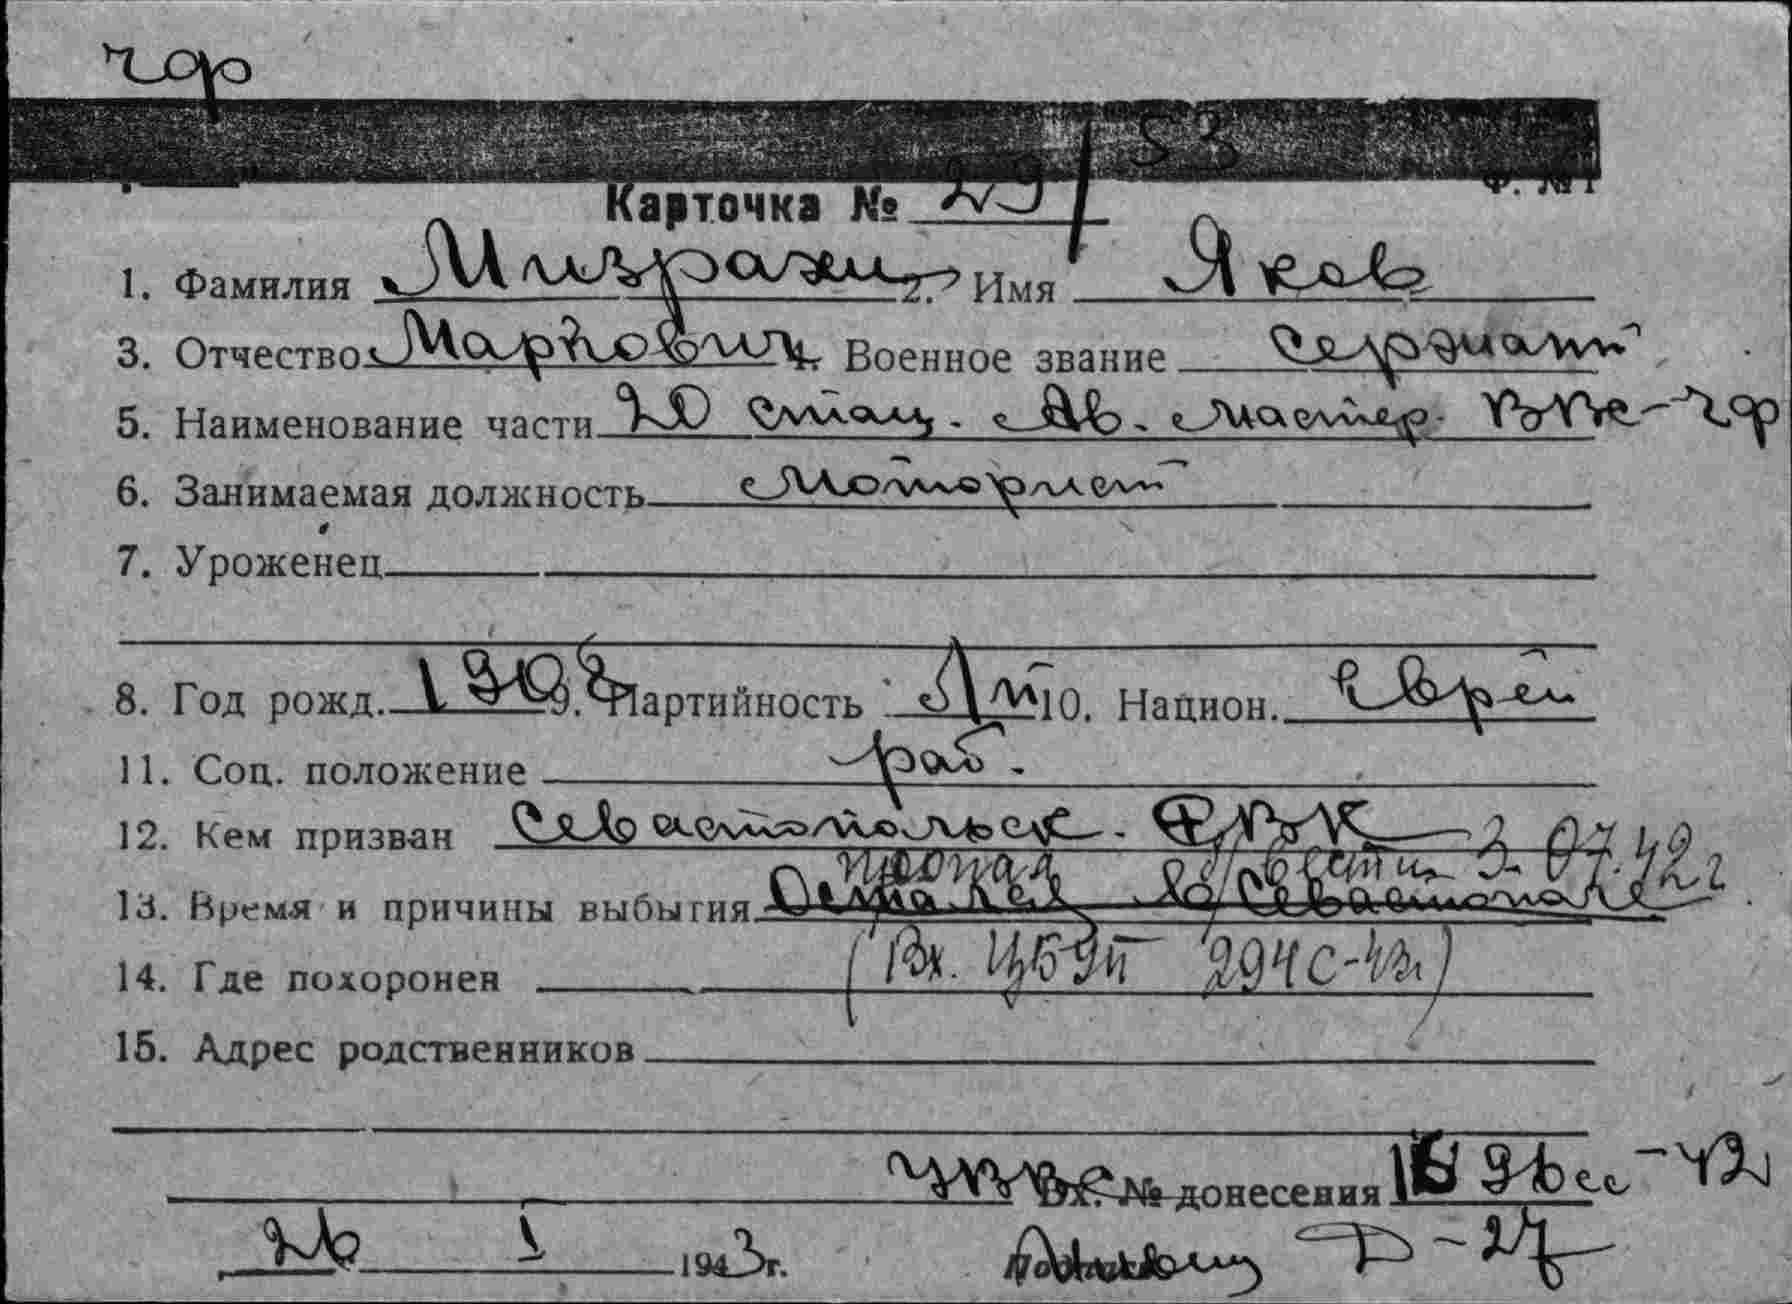 чф
53
Ф. № 1
Карточка № 29
1. Фамилия Мизрахи 2. Имя Яков
3. Отчество Маркович Военное звание Сержант
5. Наименование части 20 стац. Ав. мастер. ВВС-чф
6. Занимаемая должность Моторист
7. Уроженец
8. Год рожд. 1908 9. Партийность 10. Национ. еврей
11. Соц. положение раб.
12. Кем призван Севастопольск. ГВК
пропал б/вести 3.07.42г
13. Время и причины выбытия Остался в Севастополе
14. Где похоронен (Вх. 294с-43г)
15. Адрес родственников
Вх. № донесения 42
26 I 1943г.